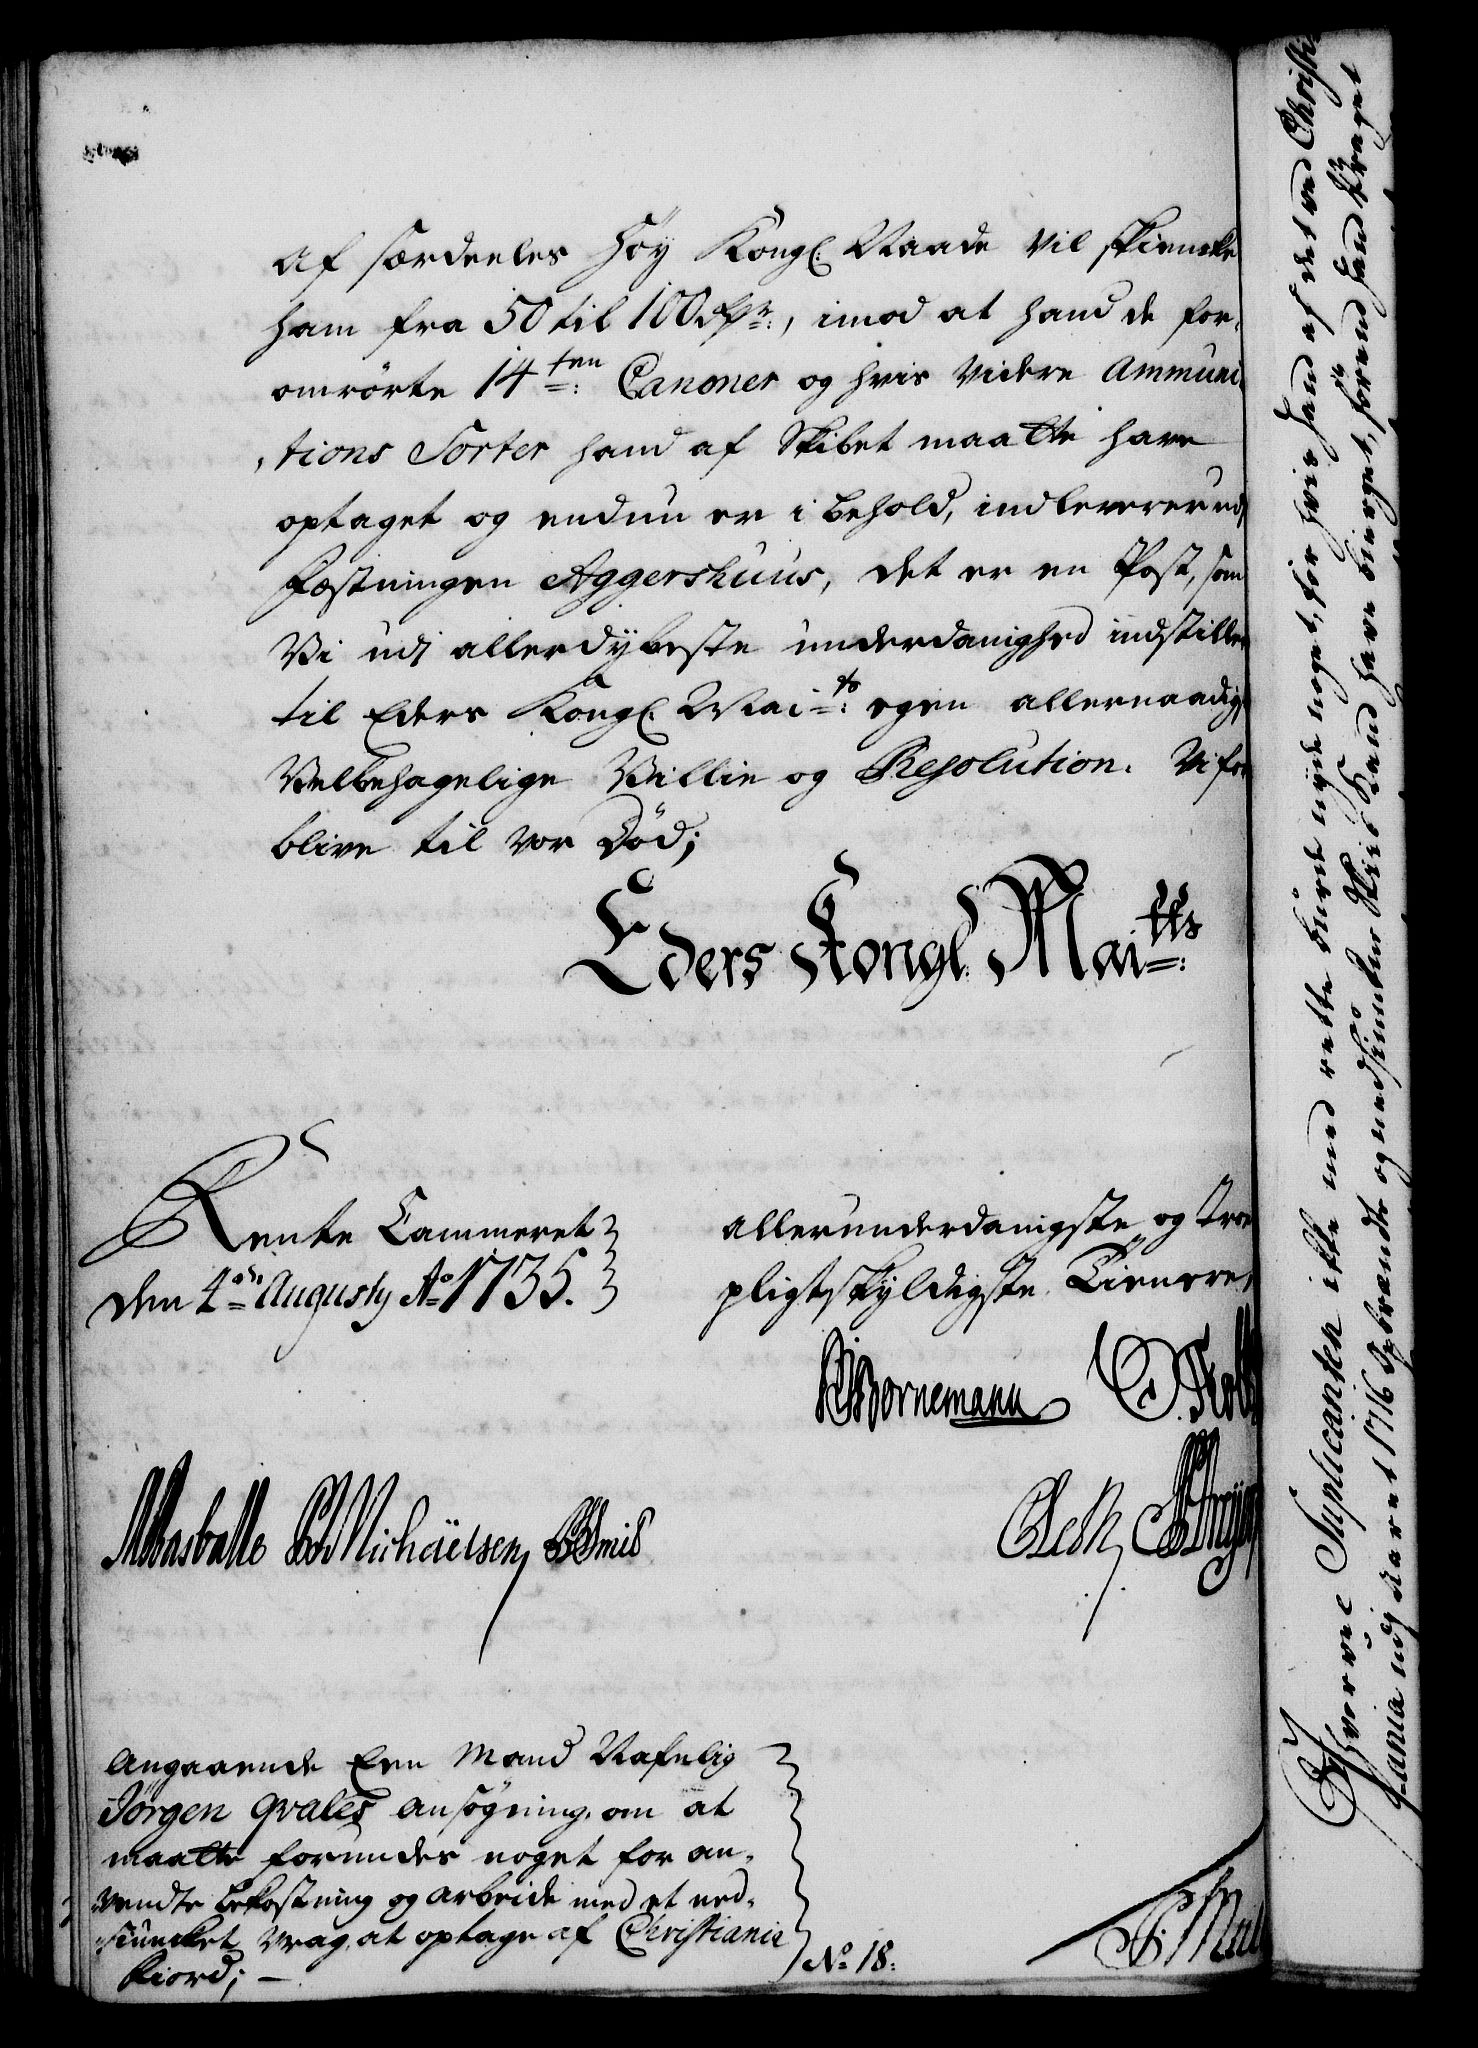 af særdeeles Høy Kongl: Naade vil skiencke
ham fra 50 til 100 Rdr:, imod at hand de for,
omrørte 14ten: Canoner og hvis videre Ammuni
,tions Sorter hand af Skibet maatte have
optaget og endnu er i behold, indleverer ved
Fæstningen Aggershuus, det er en Post, som
Vi udj allerdybeste underdanighed indstiller
til Eders Kongl. Maits: egen allernaadig,
Velbehagelige Villie og Resolution. Vi for
blive til vor Död;
Eders Kongl: Maitts:
Rente Cammeret
den 4de Augustj Ao 1735.
allerunderdanigste og troe
pligtskyldigste Tienere,
Bornemann
Michaëlsen
Angaaende Een Mand Nafnlig
Jörgen Qvales ansøgning, om at
maatte forundes noget for an,
vendte bekostning og arbeide med et ned,
siuncket vrag at optage af Christiania
Fiord; —
No 18:
Hvorvel Suplicanten icke med rette burde nyde noget, for hvis hand af det ved Christi
jania udj Aaret 1716 opbrændte og nedsiunckne Skib hand have bierget, forend hand vraget